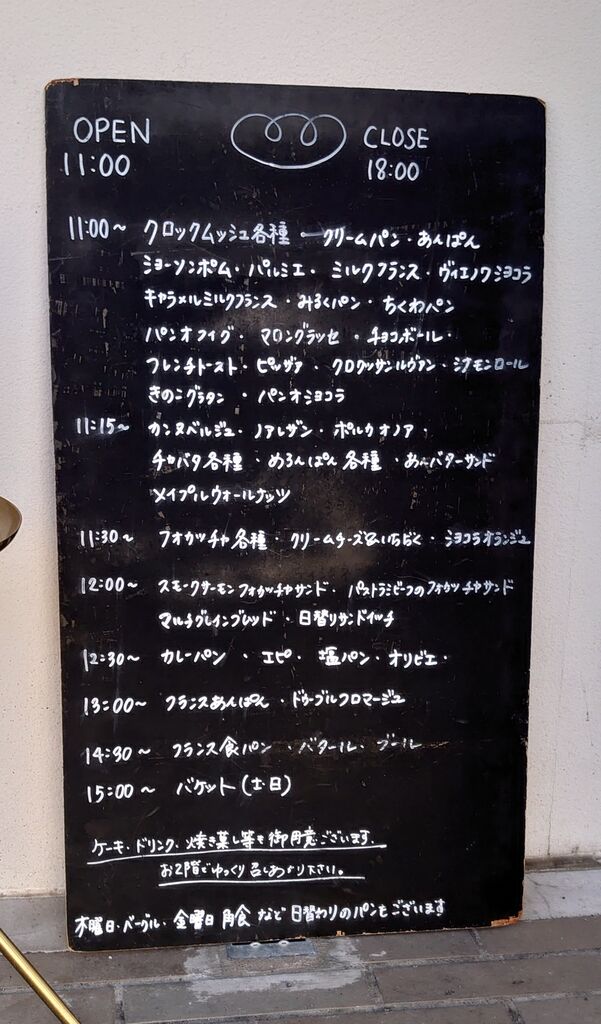 OPEN
11:00
CLOSE
18:00
11:00～ クロックムッシュ各種 ・ クリームパン・あんぱん
ショーソンポム・パルミエ・ミルクフランス・ヴィエノワショコラ
キャラメルミルクフランス・みるくパン・ちくわパン
パンオフィグ・マロングラッセ・チョコボール・
フレンチトースト・ピッツァ・クロワッサンルヴァン・シナモンロール
きのこグラタン ・ パンオショコラ
11:15～ カンヌベルジュ・ノアレザン・ポルカオノア・
チャバタ各種・めろんぱん各種・あんバターサンド
メイプルウォールナッツ
11:30～ フォカッチャ各種・クリームチーズ&いちぢく・ショコラオランジュ
12:00～ スモークサーモンフォカッチャサンド・パストラミビーフのフォカッチャサンド
マルチグレインブレッド・日替りサンドイッチ
12:30～ カレーパン ・ エピ・塩パン・オリビエ・
13:00～ フランスあんぱん・ドゥーブルフロマージュ
14:30～ フランス食パン・バタール・ブール
15:00～ バケット(土・日)
ケーキ・ドリンク・焼き菓子等も御用意ございます。
お2階でゆっくり召しあがり下さい。
木曜日・ベーグル・金曜日 角食 など日替わりのパンもございます